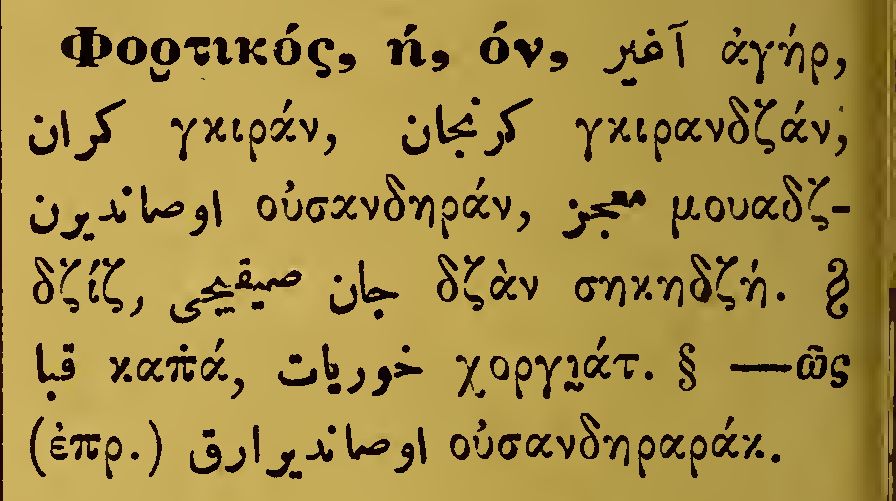 Φορτικός, ή, όν, آغیر ἀγήρ,
كران γκιράν, كرنجان γκιρανδζάν,
اوصاندیرن οὐσανδηράν, معجز μουαδζ-
δζίζ, جان صیقیجی δζὰν σηκηδζή. §
قبا καπ̇ά, خوریات χοργι̮άτ. § —ῶς
(ἐπρ.) اوصاندیرارق οὐσανδηραράκ.